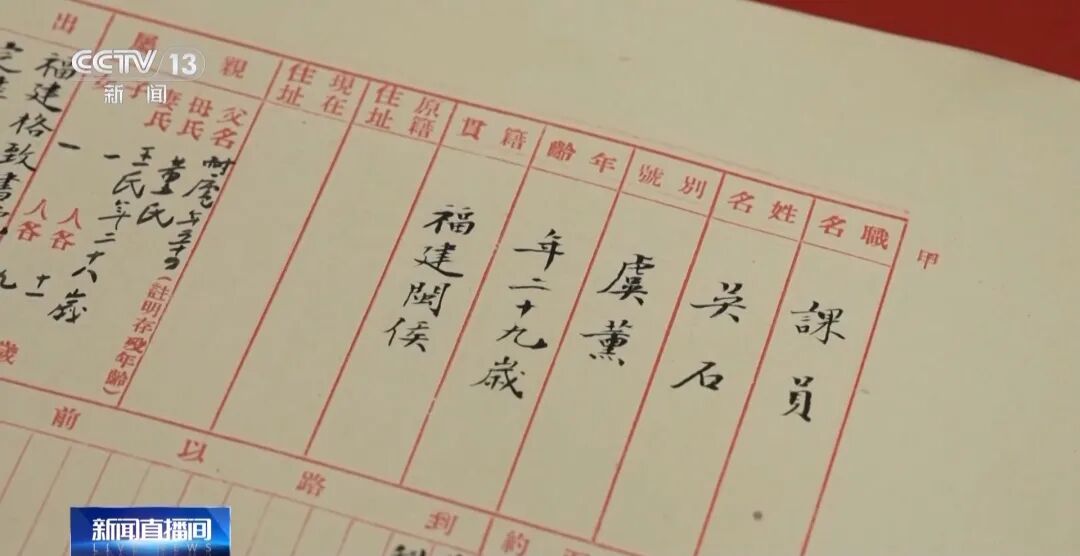 CCTV 13
新闻
甲
職名
課員
姓名
吴石
別號
虞薰
年齡
年二十九歲
籍貫
福建閩侯
原籍住址
現在住址
親屬
父名
母氏 董氏
妻氏 王氏年二十八歲
子 一人各十一
女 一人各九歲
(註明存歿年齡)
出
福建格致書
到路以前
約
新闻直播间
LIVE NEWS